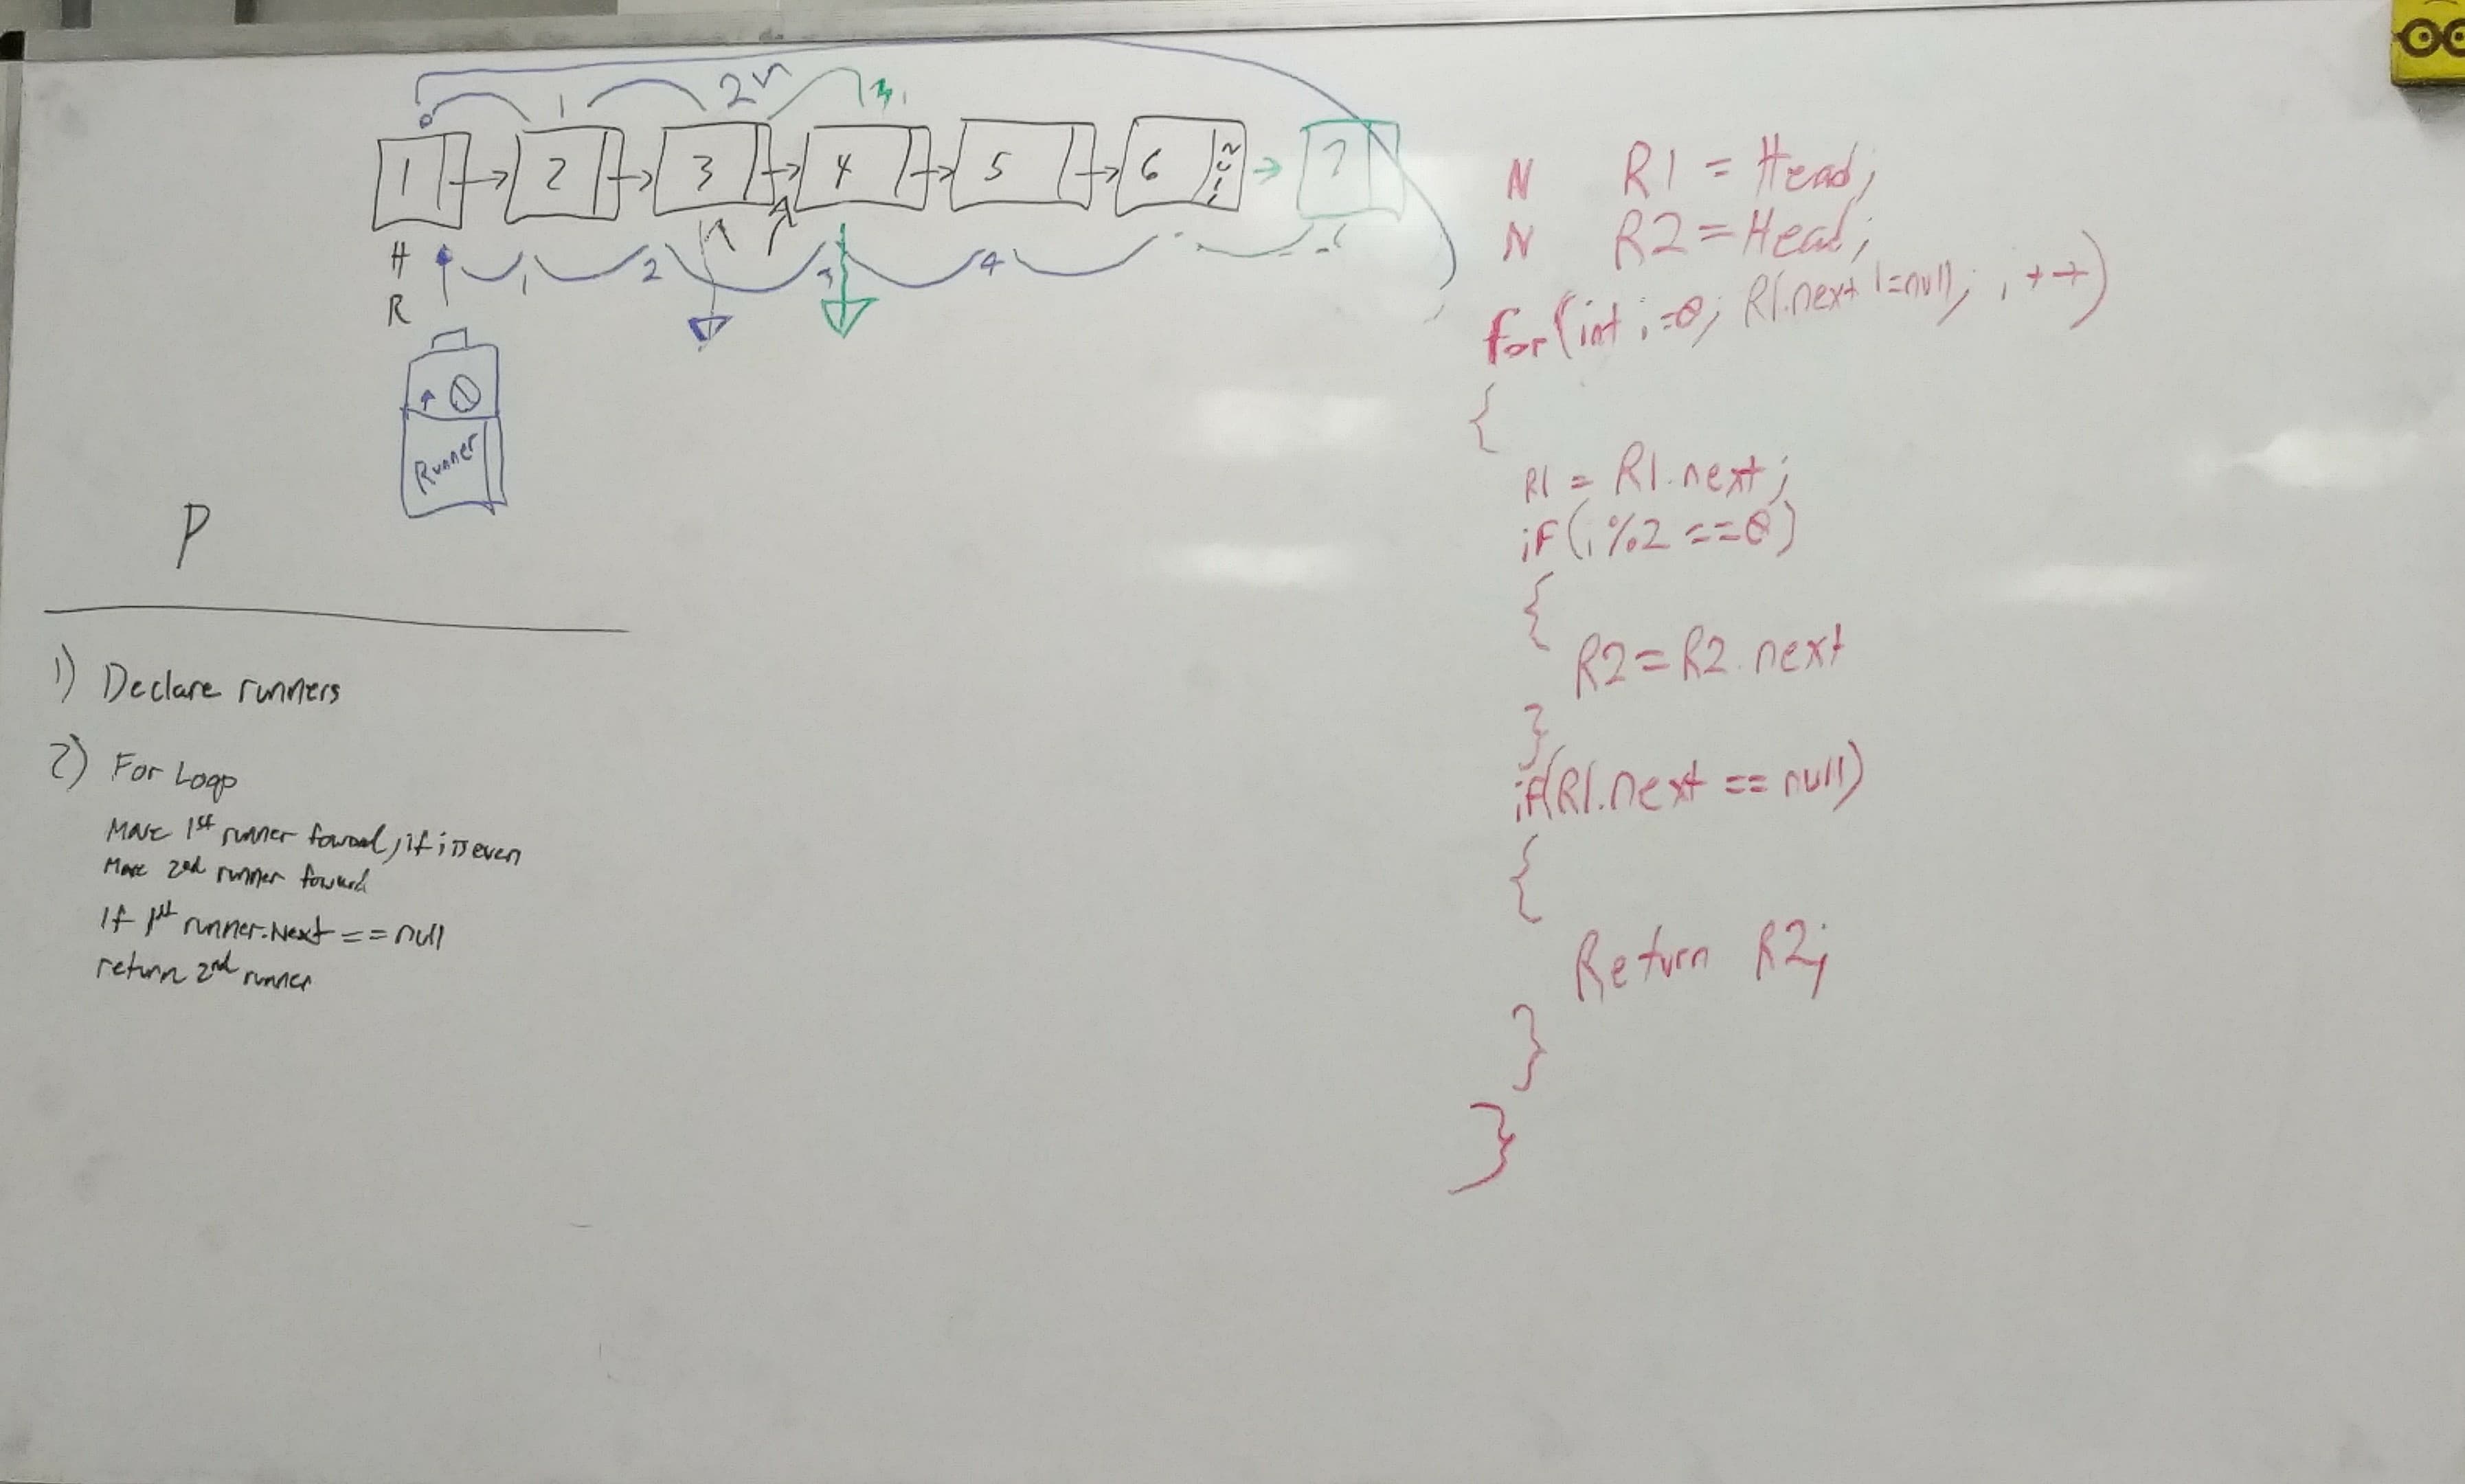 1 2 3
1 2 3 4 5 6 NULL 7
H 1 2 3 4
R
Runner
P
1) Declare runners
2) For Loop
Move 1st runner foward, if i is even
Move 2nd runner foward
If 1st runner.Next == null
return 2nd runner
N R1 = Head;
N R2 = Head;
for(int i=0; R1.next != null; i++)
{
R1 = R1.next;
if(i%2 ==0)
{
R2 = R2.next
}
if(R1.next == null)
{
Return R2;
}
}